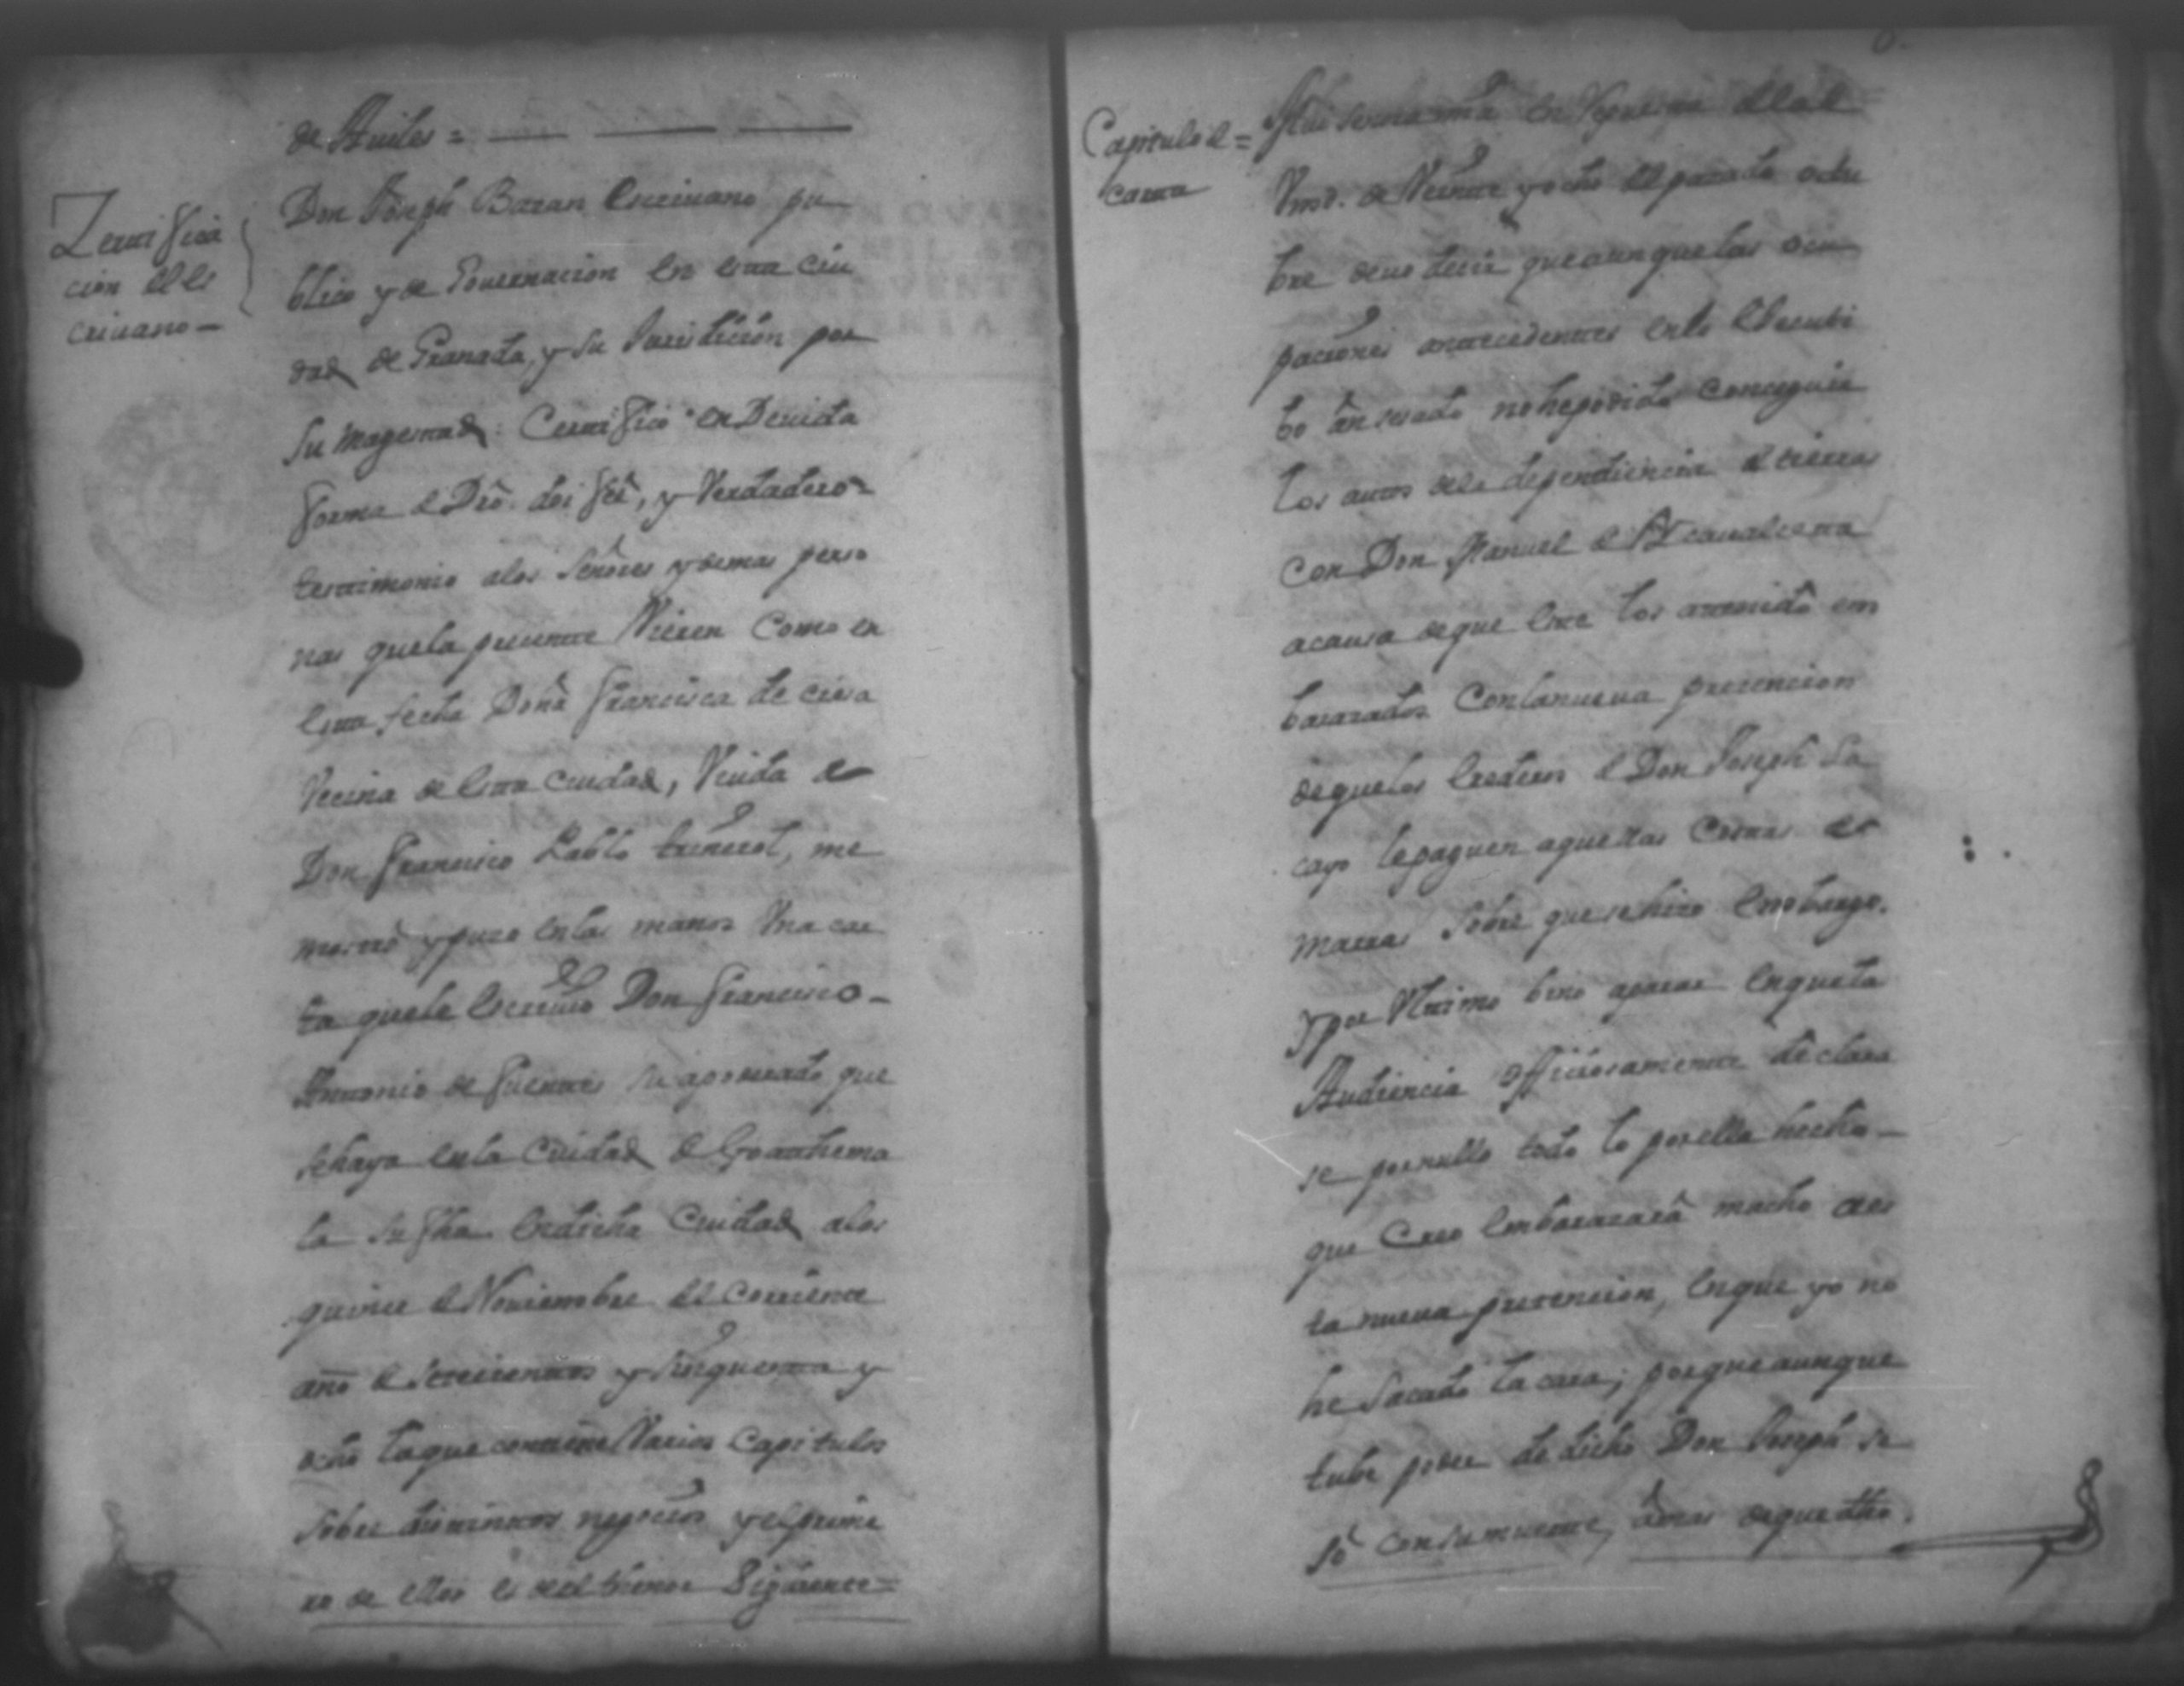 de Aviles =
Zertifica
cion del es
crivano
Don Joseph Bazan Escrivano pu
blico y de Governacion en esta ciu
dad de Granada, y su Jurisdicion por
su Magestad: Certifico en Devida
forma de Dro. doi feé, y Verdadero
testimonio alos Señores y demas perso
nas quela presente Vieren Como en
esta fecha Doña Francisca de
Vecina de esta Ciudad, Viuda de
Don Francisco Pablo me
mostró y puso enlas manos Una car
ta quele escrivió Don Francisco
Antonio de Fuentes su apoderado que
sehaya enla Ciudad de Goathema
la su fha endicha Ciudad alos
quince de Noviembre del Corriente
año de setecientos y sinquenta y
ocho laque contiene Varios Capitulos
sobre distintos negocios y el prime
ro de ellos es del thenor Siguiente =
Capitulo de =
carta
en
Vmd. de Veinte y ocho del pasado octu
bre devo decir que aunque las ocu
paciones antecedentes
to an sesado nohepodido Conseguir
los autos dela dependiencia de tierras
Con Don Manuel de
acausa deque este los atenido em
barazados Conlanueva pretencion
dequelos erederos de Don Joseph Sa
cayo lepaguen aquellas Costas
sobre que se hizo embargo.
Y por Ultimo bino aparar enquela
Audiencia officiosamente declara
se pornullo todo lo porella hecho
que Creo embarazará mucho aes
ta nueva pretencion, enque yo no
he Sacado la cara; porque aunque
tube poder de dicho Don Joseph se
só consumuerte, ademas deque dho.